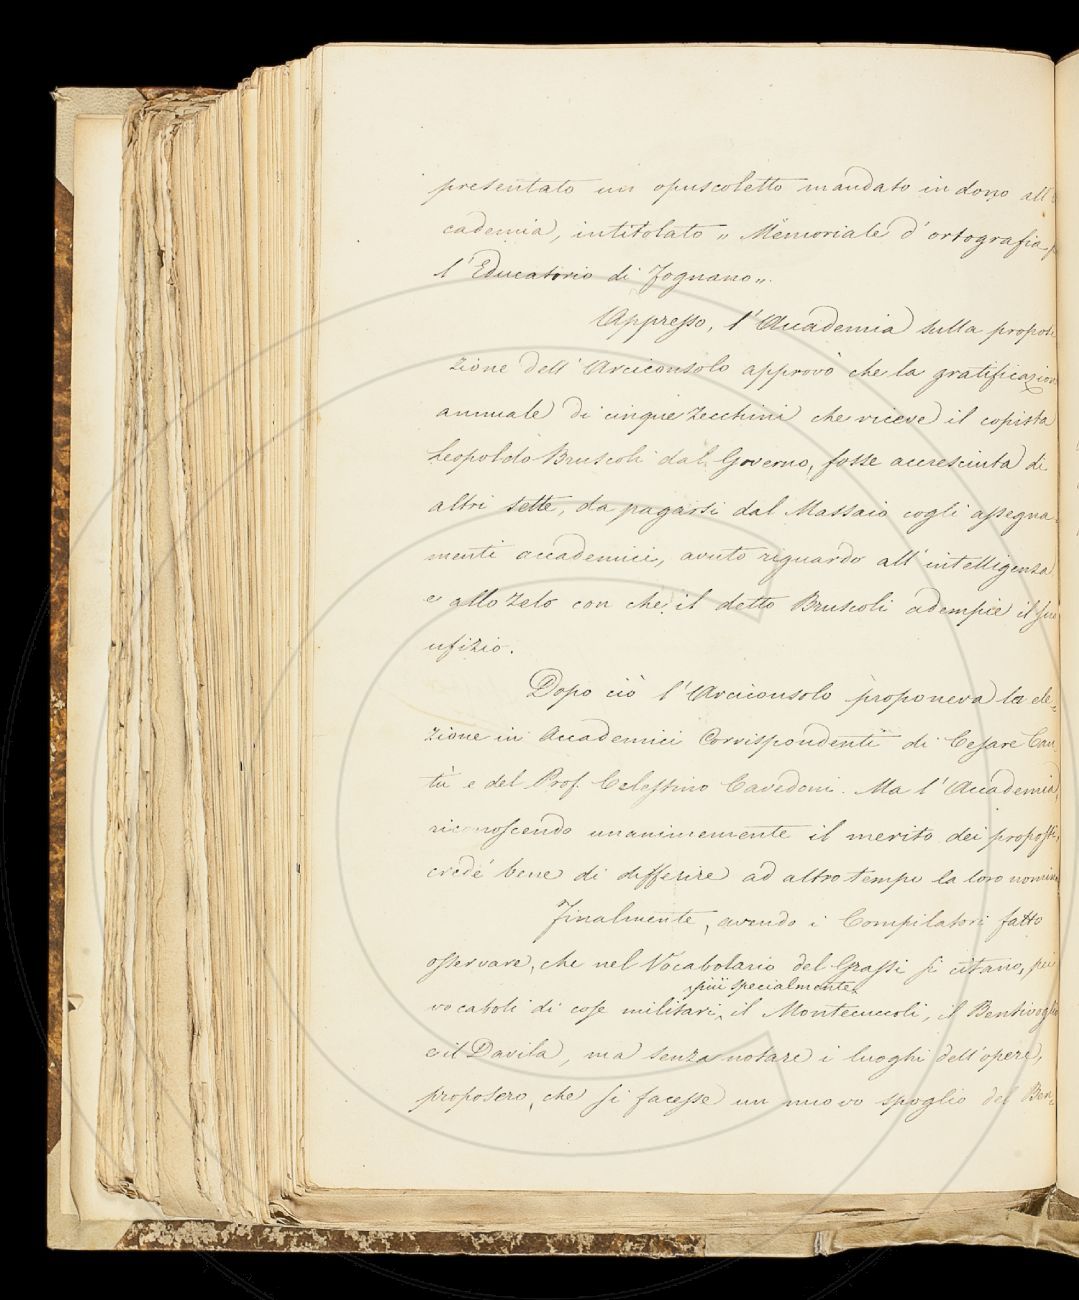 presentato un opuscoletto mandato in dono all'
cademia, intitolato „ Memoriale d'ortografia p
l'Educatorio di Fognano „.
Appresso, l'Accademia sulla proposi
zione dell'Arciconsolo approvò che la gratificazion
annuale di cinque zecchini che riceve il copista
Leopoldo Bruscoli dal Governo, fosse accresciuta di
altri sette, da pagarsi dal Massaio cogli assegna-
menti accademici, avuto riguardo all'intelligenza
e allo zelo con che il detto Bruscoli adempie il suo
ufizio.
Dopo ciò l'Arciconsolo proponeva la ele-
zione in Accademici Corrispondenti di Cesare Can
tù e del Prof. Celestino Cavedoni. Ma l'Accademia,
riconoscendo unanimemente il merito dei proposti,
credè bene di differire ad altro tempo la loro nomina
Finalmente, avendo i Compilatori fatto
osservare, che nel Vocabolario del Grassi si citano, pei
più specialmente
vocaboli di cose militari, il Montecuccoli, il Bentivoglio
e il Davila, ma senza notare i luoghi dell'opere,
proposero, che si facesse un nuovo spoglio del Ben-